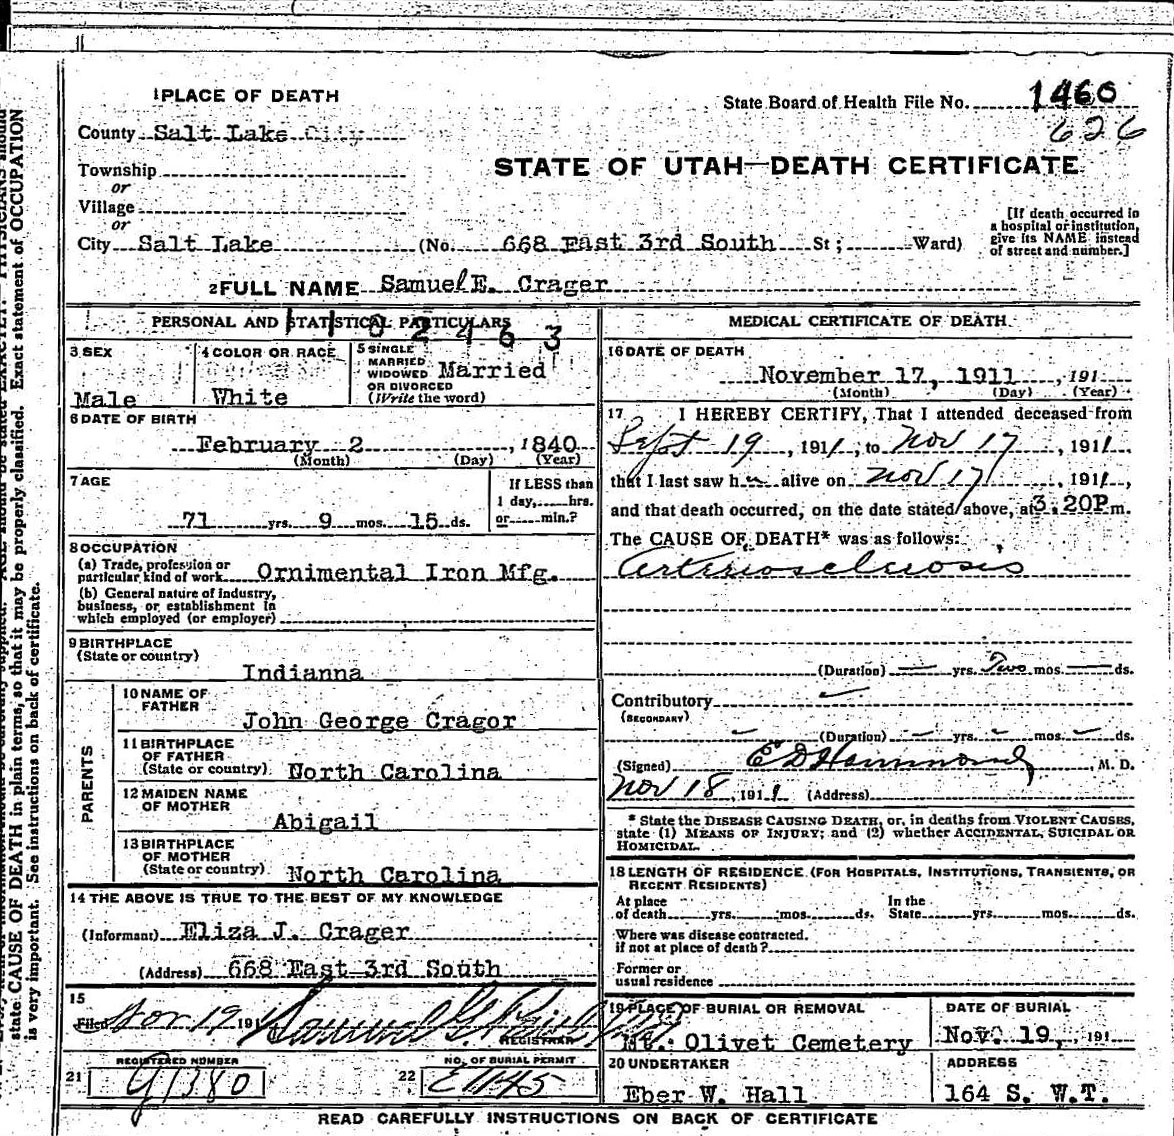 1 PLACE OF DEATH
State Board of Health File No. 1460
626
County Salt Lake City
STATE OF UTAH—DEATH CERTIFICATE
Township
or
Village
or
City Salt Lake (No. 668 East 3rd South St; Ward)
[If death occurred in
a hospital or institution,
give its NAME instead
of street and number.]
2 FULL NAME Samuel E. Crager
PERSONAL AND STATISTICAL PARTICULARS
02463
3 SEX
Male
4 COLOR OR RACE
White
5 SINGLE
MARRIED
WIDOWED
OR DIVORCED
(Write the word)
Married
6 DATE OF BIRTH
February 2, 1840
(Month) (Day) (Year)
7 AGE
71 yrs. 9 mos. 15 ds.
If LESS than
1 day, hrs.
or min.?
8 OCCUPATION
(a) Trade, profession or
particular kind of work Ornimental Iron Mfg.
(b) General nature of industry,
business, or establishment in
which employed (or employer)
9 BIRTHPLACE
(State or country)
Indianna
PARENTS
10 NAME OF
FATHER
John George Cragor
11 BIRTHPLACE
OF FATHER
(State or country) North Carolina
12 MAIDEN NAME
OF MOTHER
Abigail
13 BIRTHPLACE
OF MOTHER
(State or country) North Carolina
14 THE ABOVE IS TRUE TO THE BEST OF MY KNOWLEDGE
(Informant) Eliza J. Crager
(Address) 668 East 3rd South
15
Filed Nov 19 191 Samuel G.
REGISTRAR
REGISTERED NUMBER
21 G1380
NO. OF BURIAL PERMIT
22 E1145
MEDICAL CERTIFICATE OF DEATH
16 DATE OF DEATH
November 17, 1911, 191
(Month) (Day) (Year)
17 I HEREBY CERTIFY, That I attended deceased from
Sept 19, 1911, to Nov 17, 1911,
that I last saw h alive on Nov 17, 1911,
and that death occurred, on the date stated above, at 3.20P m.
The CAUSE OF DEATH* was as follows:
Arteriosclerosis
(Duration) — yrs. Two mos. — ds.
Contributory
(SECONDARY)
(Duration) yrs. mos. ds.
(Signed) E D Hammond, M. D.
Nov 18, 1911 (Address)
* State the DISEASE CAUSING DEATH, or, in deaths from VIOLENT CAUSES,
state (1) MEANS OF INJURY; and (2) whether ACCIDENTAL, SUICIDAL OR
HOMICIDAL.
18 LENGTH OF RESIDENCE (FOR HOSPITALS, INSTITUTIONS, TRANSIENTS, OR
RECENT RESIDENTS)
At place
of death yrs. mos. ds.
In the
State yrs. mos. ds.
Where was disease contracted.
if not at place of death?
Former or
usual residence
19 PLACE OF BURIAL OR REMOVAL
Mt. Olivet Cemetery
DATE OF BURIAL
Nov. 19, 191
20 UNDERTAKER
Eber W. Hall
ADDRESS
164 S. W.T.
READ CAREFULLY INSTRUCTIONS ON BACK OF CERTIFICATE
Exact statement of OCCUPATION
state CAUSE OF DEATH in plain terms, so that it may be properly classified.
is very important. See instructions on back of certificate.